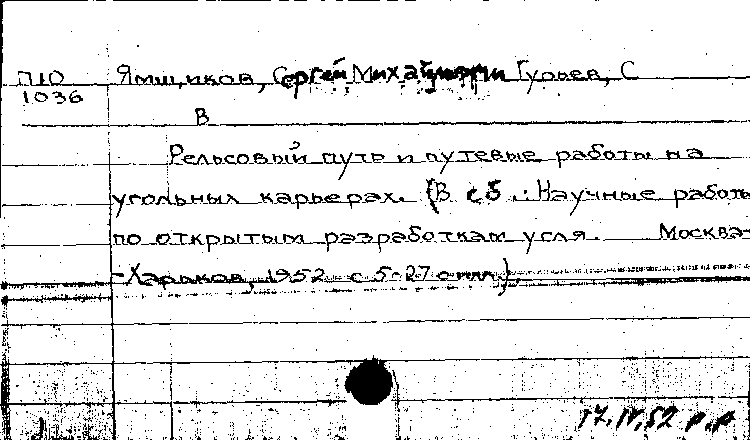 П10 Ямщиков, Сергей Михайлович Гурьев, С
1036
В
Рельсовый путь и путевые работы на
угольных карьерах. (В сб.: Научные работы
по открытым разработкам угля. Москва-
-Харьков, 1952 с 5-27 с илл.).
17.IV.52 р.р